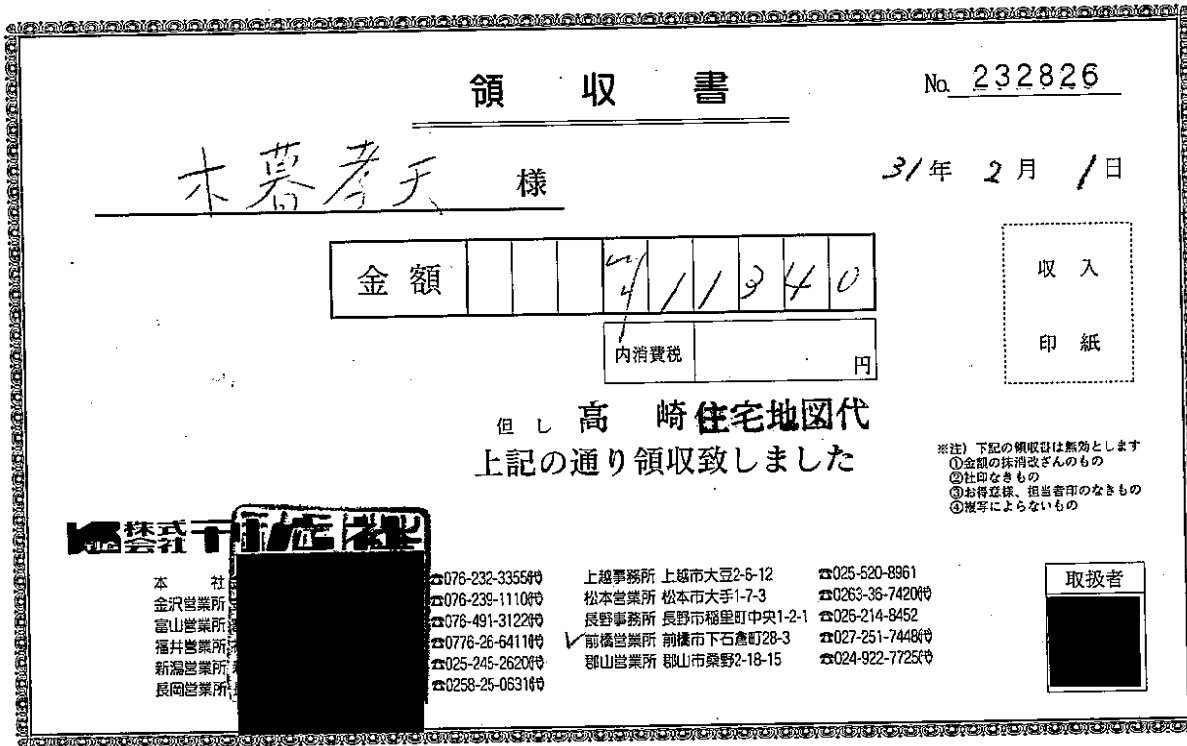 領収書
No. 232826
木暮孝夫 様
31年 2月 1日
金額 ¥11340
収入
印紙
内消費税 円
但し 高崎住宅地図代
上記の通り領収致しました
※注) 下記の領収書は無効とします
①金額の抹消改ざんのもの
②社印なきもの
③お得意様、担当者印のなきもの
④複写によらないもの
株式会社
本社 ☎076-232-3355㈹
金沢営業所 ☎076-239-1110㈹
富山営業所 ☎076-491-3122㈹
福井営業所 ☎0776-26-6411㈹
新潟営業所 ☎025-245-2620㈹
長岡営業所 ☎0258-25-0631㈹
上越事務所 上越市大豆2-6-12 ☎025-520-8961
松本営業所 松本市大手1-7-3 ☎0263-36-7420㈹
長野事務所 長野市稲里町中央1-2-1 ☎026-214-8452
✓前橋営業所 前橋市下石倉町28-3 ☎027-251-7448㈹
郡山営業所 郡山市桑野2-18-15 ☎024-922-7725㈹
取扱者